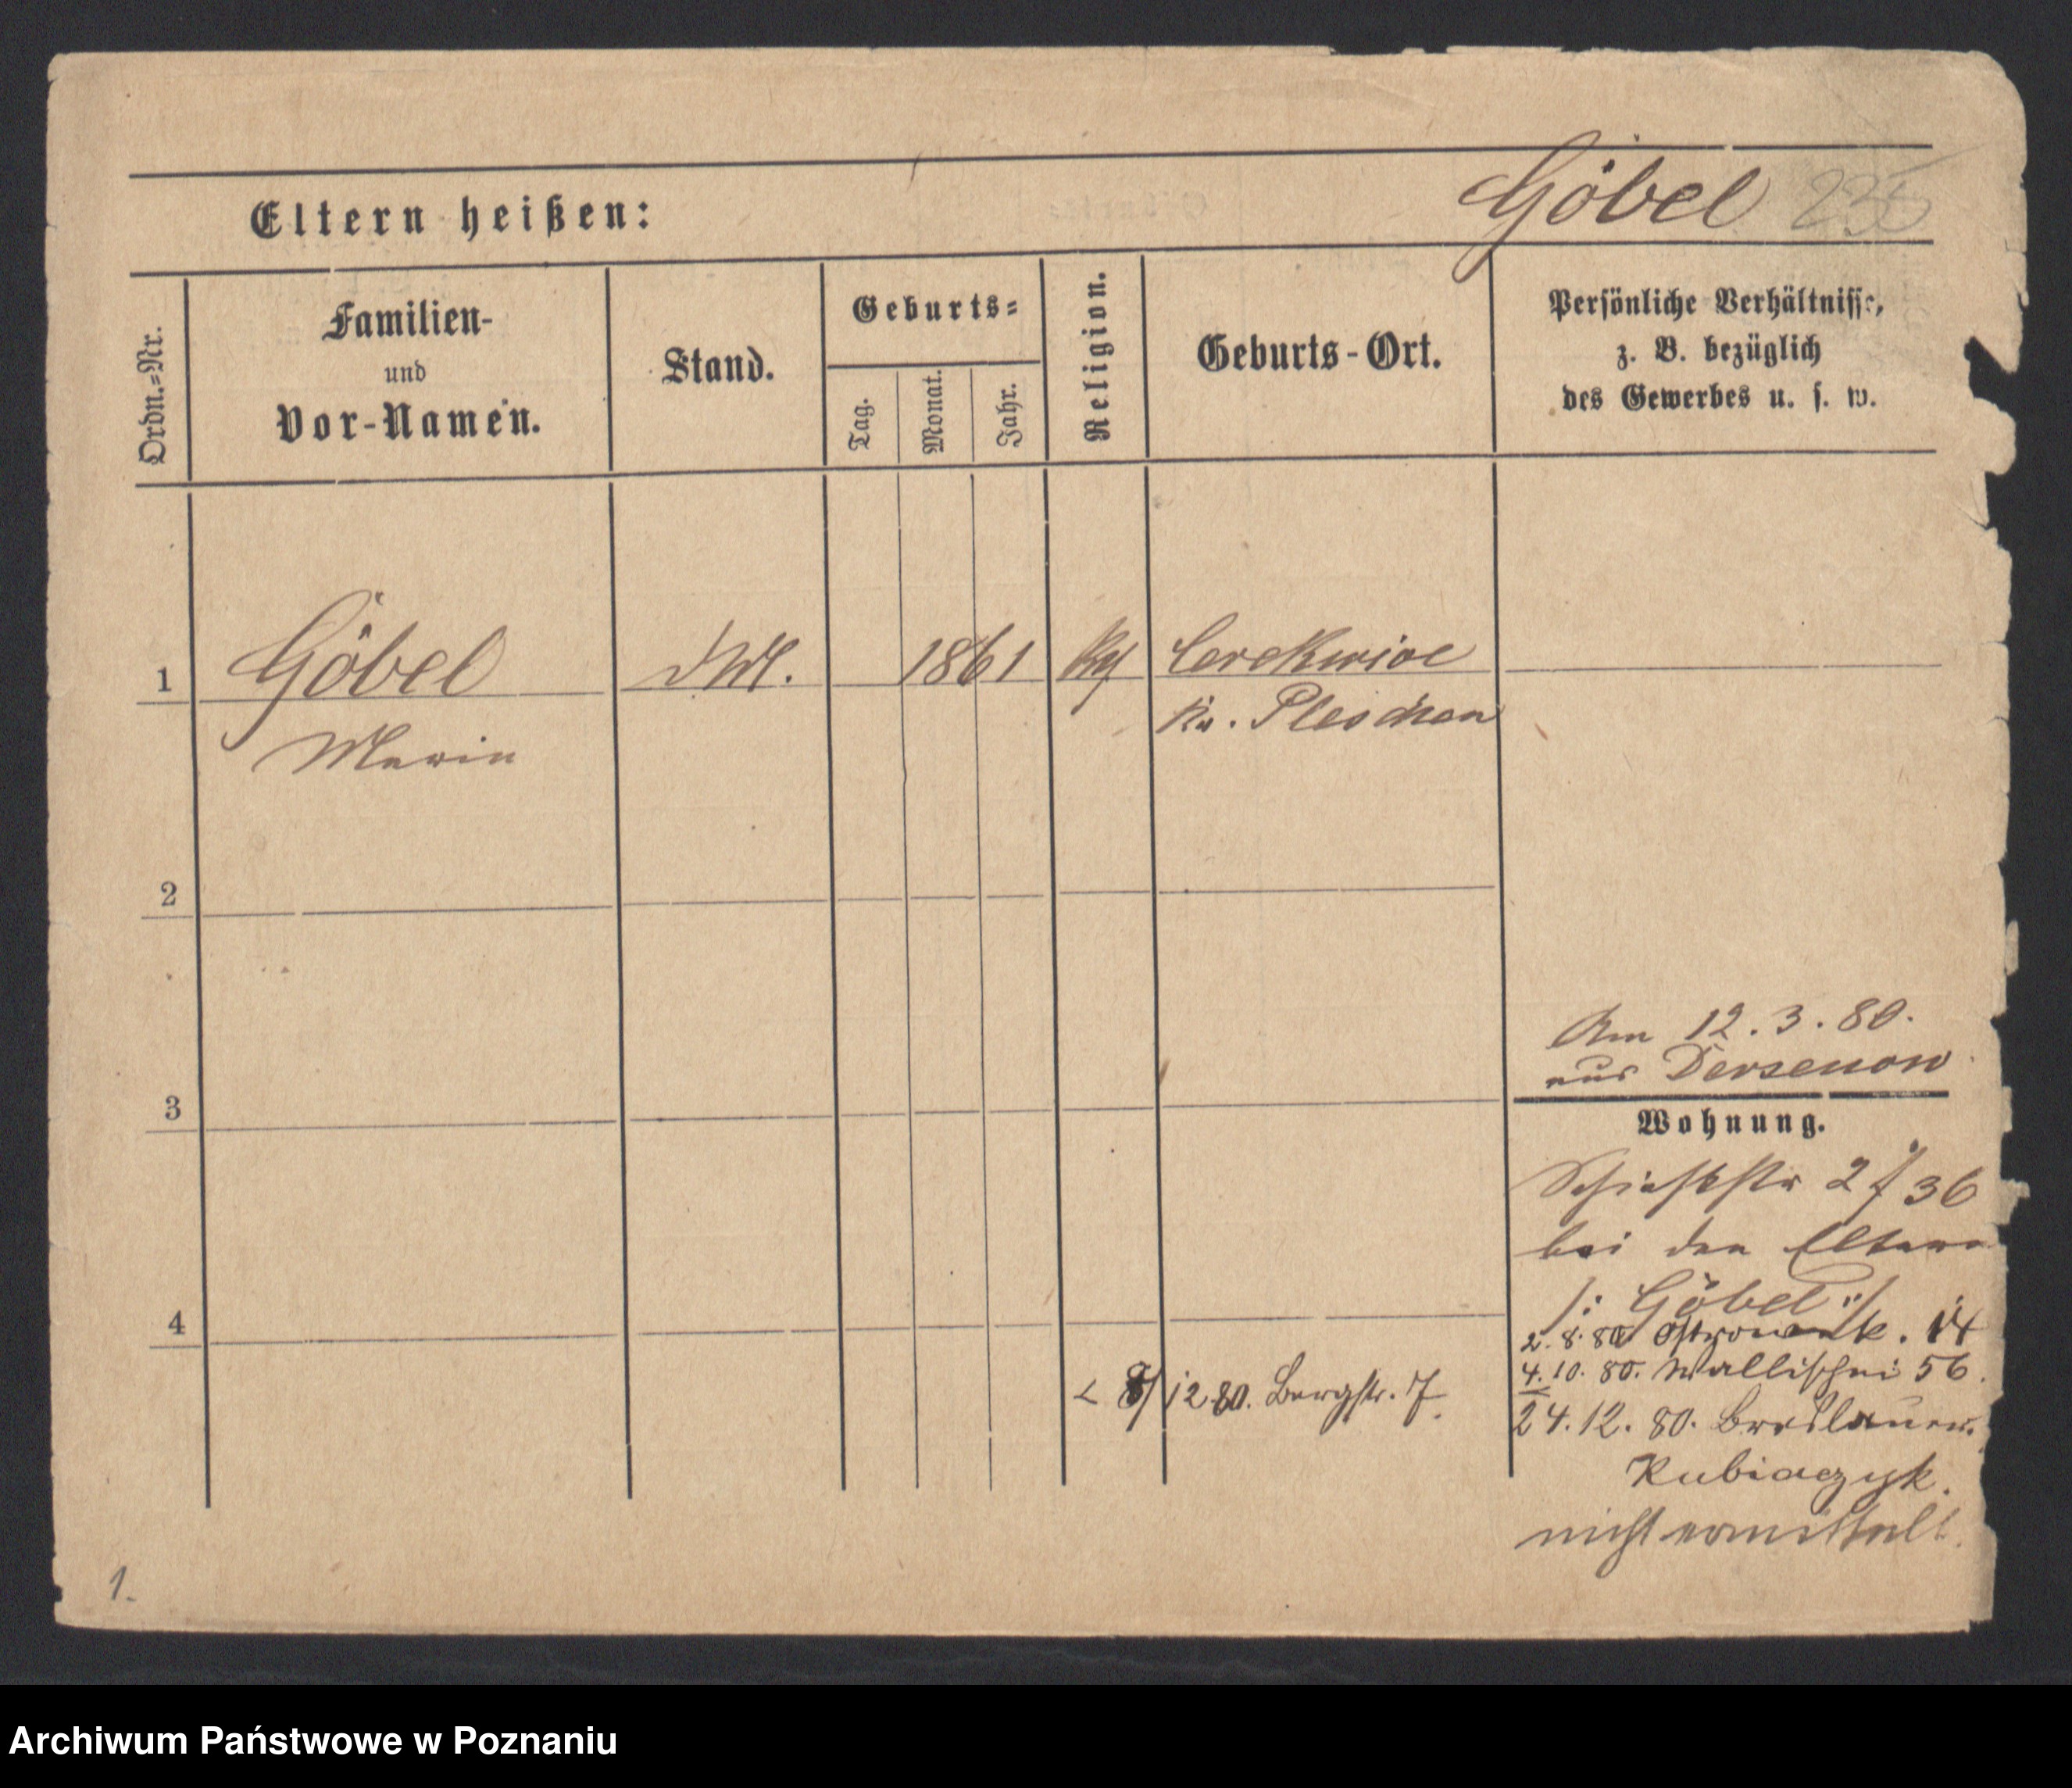 Göbel 235
Eltern heißen:
Ordn.=Nr.
Familien-
und
Vor-Namen.
Stand.
Geburts=
Tag.
Monat.
Jahr.
Religion.
Geburts-Ort.
Persönliche Verhältnisse,
z. B. bezüglich
des Gewerbes u. s. w.
1
Göbel
1861
Cerekwice
Kr. Pleschen
Marie
2
3
Am 12.3.80.
aus
Wohnung.
36
bei den Eltern
/: Göbel :/
4
2.8.80 Ostrowek. 14
4.10.80. Wallischei 56.
8/12.80. Bergstr. 7.
24.12.80. Breslauer.
Kubiaczyk.
nicht ermittelt.
1.
Archiwum Państwowe w Poznaniu